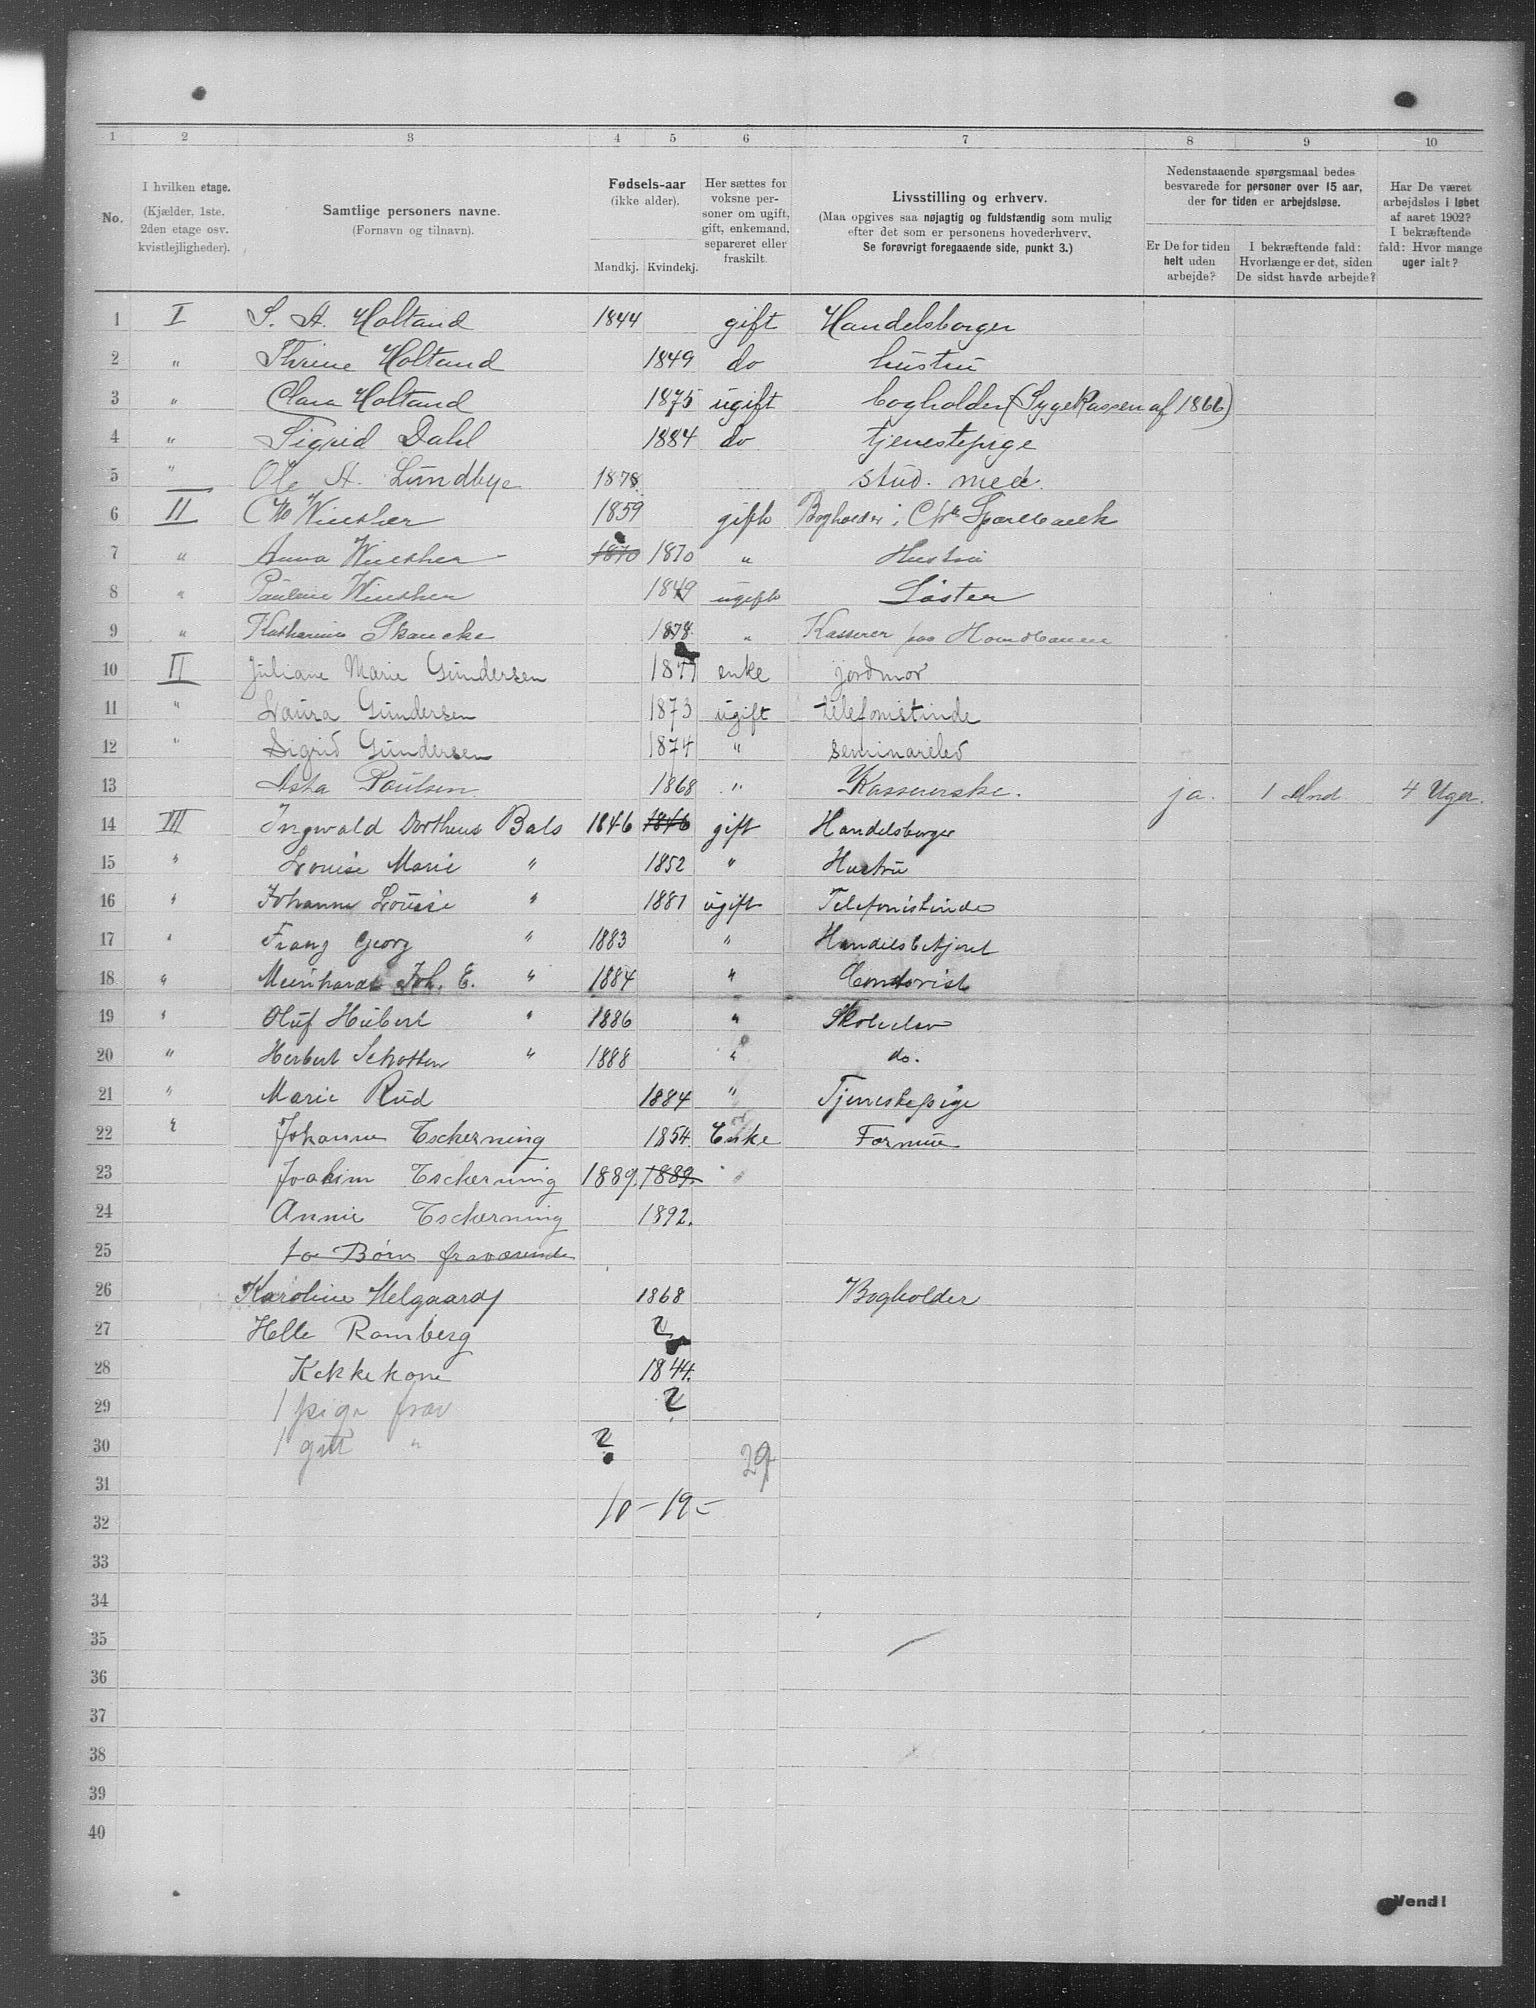 1 2 3 4 5 6 7 8 9 10
No.
I hvilken etage.
(Kjælder, 1ste.
2den etage osv.
kvistlejligheder).
Samtlige personers navne.
(Fornavn og tilnavn).
Fødsels-aar
(ikke alder).
Mandkj. Kvindekj.
Her sættes for
voksne per-
soner om ugift,
gift, enkemand,
separeret eller
fraskilt.
Livsstilling og erhverv.
(Maa opgives saa nøjagtig og fuldstændig som mulig
efter det som er personens hovederhverv.
Se forøvrigt foregaaende side, punkt 3.)
Nedenstaaende spørgsmaal bedes
besvarede for personer over 15 aar,
der for tiden er arbejdsløse.
Er De for tiden
helt uden
arbejde?
I bekræftende fald:
Hvorlænge er det, siden
De sidst havde arbejde?
Har De været
arbejdsløs i løbet
af aaret 1902?
I bekræftende
fald: Hvor mange
uger ialt?
1 I S. A. Holtand 1844 gift Handelsborger
2 " Thrine Holtand 1849 do hustru
3 " Clara Holtand 1875 ugift bogholder (Sygekassen af 1866)
4 " Sigrid Dahl 1884 do tjenestepige
5 " Ole A. Lundbye 1878. stud. med.
6 II Winsther 1859 gift Bogholder i Chra Sparebank
7 " Anna Winsther 1870 1870 " Hustru
8 " Pauline Winsther 1849 ugift Søster
9 " Katharina Skancke 1878. " Kasserer paa
10 II Juliane Marie Gundersen 1847 enke jordmor
11 " Laura Gundersen 1873 ugift telefonistinde
12 " Sigrid Gundersen 1874 " seminarelev
13 Asta Poulsen 1868 " Kassererske. ja. 1 Mnd. 4 Uger.
14 III Ingwald Dortheus Bals 1846 1846 gift Handelsborger
15 " Louise Marie " 1852 " Hustru
16 " Johanne Louise " 1881 ugift Telefonistinde
17 " Franz Georg " 1883 " Handelsbetjent
18 " Meinhardt Joh. E. " 1884 " Contorist
19 " Oluf Hubert " 1886 " Skoleelev
20 " Herbert Schotten " 1888 " do.
21 " Marie Rud 1884 " Tjenestepige
22 " Johanne Tscherning 1854. Enke Formue
23 Joakim Tscherning 1889. 1889. "
24 Annie Tscherning 1892.
25 to Børn fraværende
26 Karoline Helgaard 1868 Bogholder
27 Helle Ramberg ?
28 Kokkekone 1844.
29 1 pige frav ?
30 1 gut " ?
29
31
10 - 19 -
32
33
34
35
36
37
38
39
40
Vend!